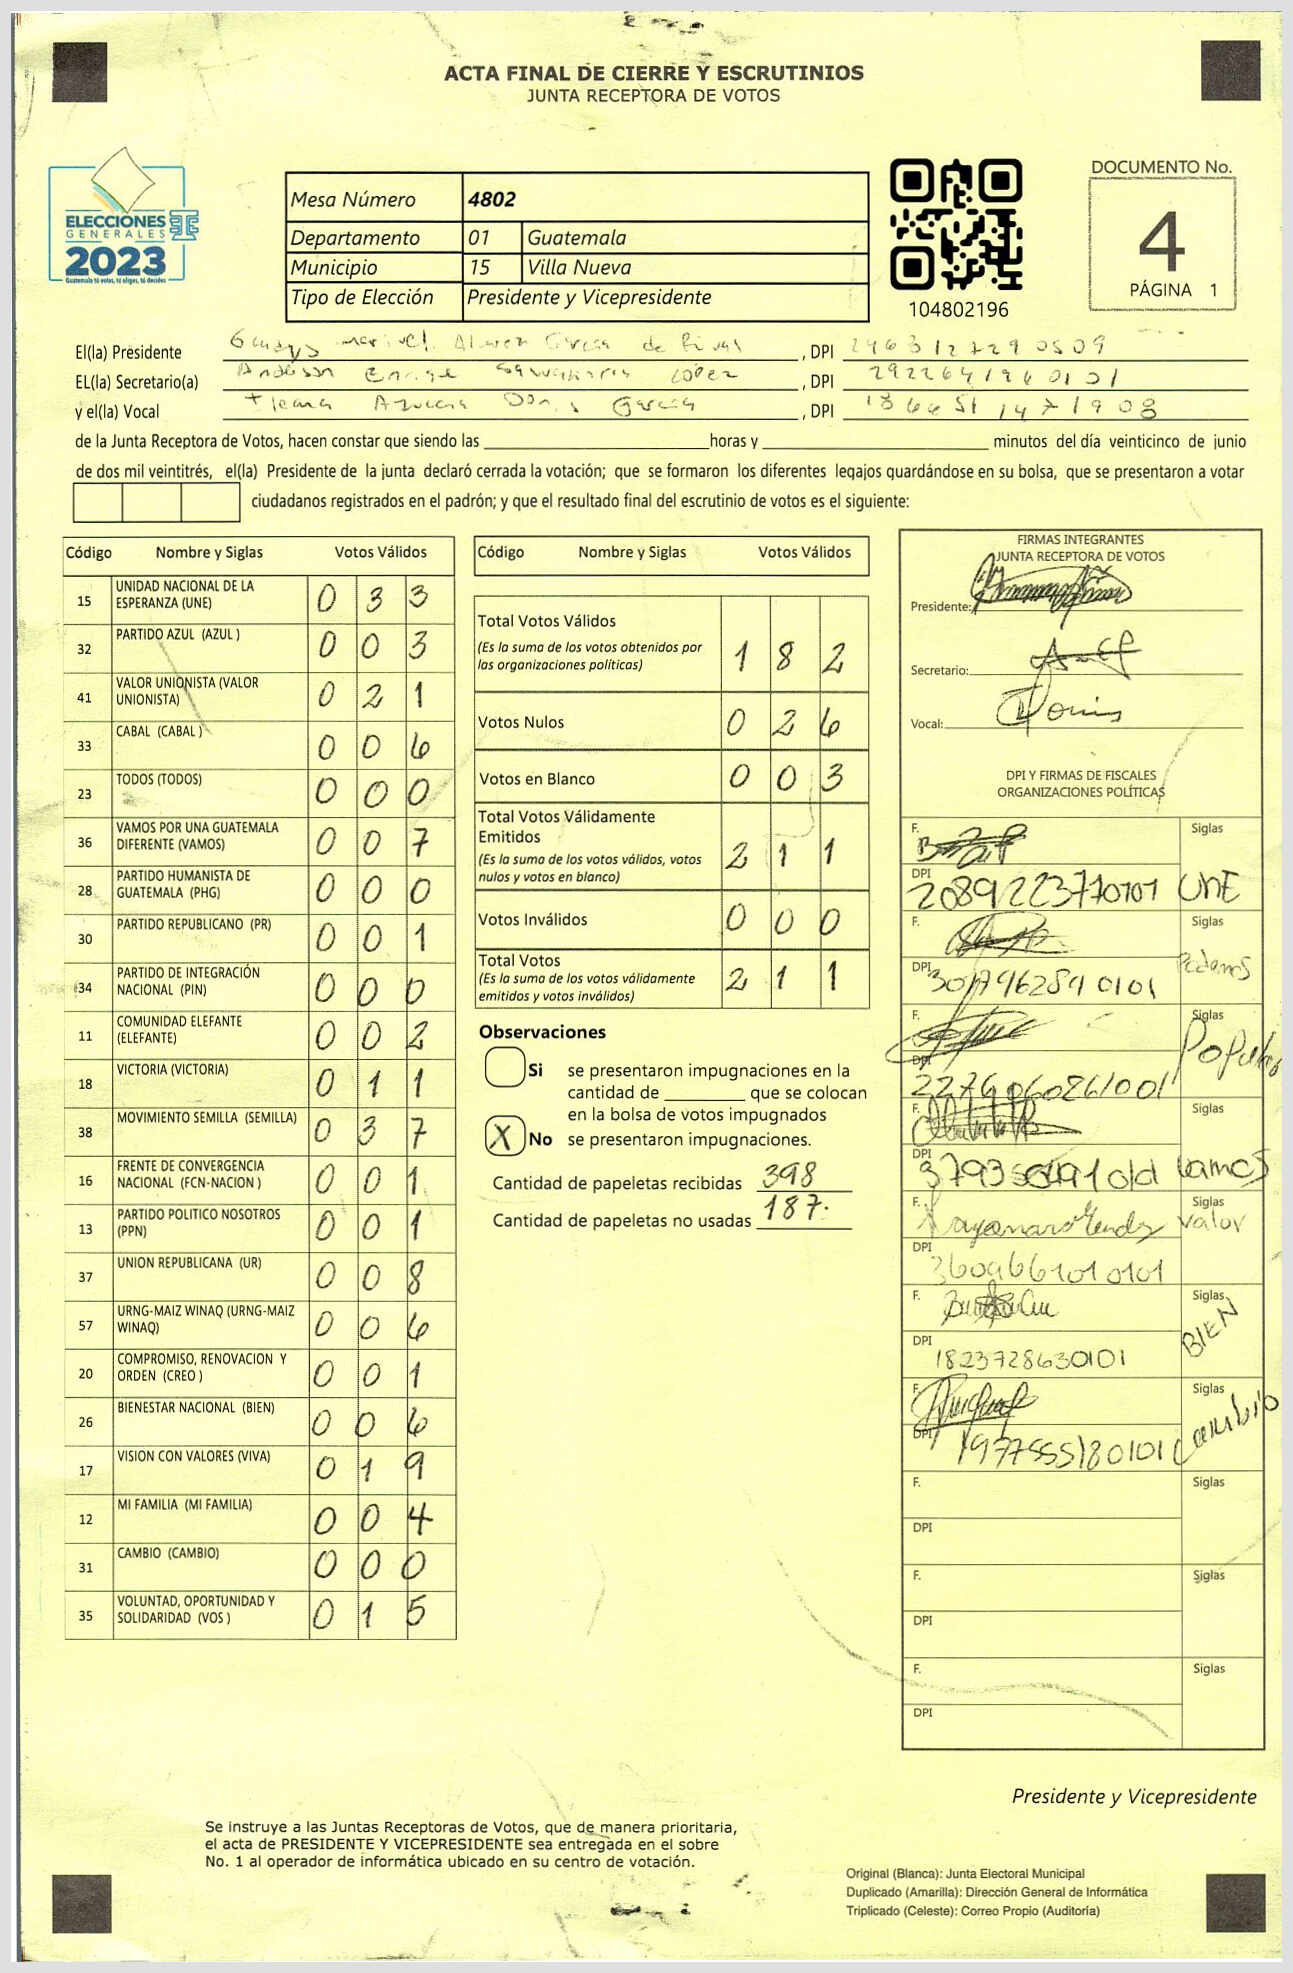 ACTA FINAL DE CIERRE Y ESCRUTINIOS
JUNTA RECEPTORA DE VOTOS
ELECCIONES
GENERALES
2023
Guatemala tú votas, tú eliges, tú decides
Mesa Número 4802
Departamento 01 Guatemala
Municipio 15 Villa Nueva
Tipo de Elección Presidente y Vicepresidente
104802196
DOCUMENTO No.
4
PÁGINA 1
El(la) Presidente de , DPI
EL(la) Secretario(a) Anderson López , DPI
y el(la) Vocal Ileana Azucena García , DPI
de la Junta Receptora de Votos, hacen constar que siendo las horas y minutos del día veinticinco de junio
de dos mil veintitrés, el(la) Presidente de la junta declaró cerrada la votación; que se formaron los diferentes legajos guardándose en su bolsa, que se presentaron a votar
ciudadanos registrados en el padrón; y que el resultado final del escrutinio de votos es el siguiente:
Código Nombre y Siglas Votos Válidos
15 UNIDAD NACIONAL DE LA ESPERANZA (UNE) 0 3 3
32 PARTIDO AZUL (AZUL ) 0 0 3
41 VALOR UNIONISTA (VALOR UNIONISTA) 0 2 1
33 CABAL (CABAL ) 0 0 6
23 TODOS (TODOS) 0 0 0
36 VAMOS POR UNA GUATEMALA DIFERENTE (VAMOS) 0 0 7
28 PARTIDO HUMANISTA DE GUATEMALA (PHG) 0 0 0
30 PARTIDO REPUBLICANO (PR) 0 0 1
34 PARTIDO DE INTEGRACIÓN NACIONAL (PIN) 0 0 0
11 COMUNIDAD ELEFANTE (ELEFANTE) 0 0 2
18 VICTORIA (VICTORIA) 0 1 1
38 MOVIMIENTO SEMILLA (SEMILLA) 0 3 7
16 FRENTE DE CONVERGENCIA NACIONAL (FCN-NACION ) 0 0 1
13 PARTIDO POLITICO NOSOTROS (PPN) 0 0 1
37 UNION REPUBLICANA (UR) 0 0 8
57 URNG-MAIZ WINAQ (URNG-MAIZ WINAQ) 0 0 6
20 COMPROMISO, RENOVACION Y ORDEN (CREO ) 0 0 1
26 BIENESTAR NACIONAL (BIEN) 0 0 6
17 VISION CON VALORES (VIVA) 0 1 9
12 MI FAMILIA (MI FAMILIA) 0 0 4
31 CAMBIO (CAMBIO) 0 0 0
35 VOLUNTAD, OPORTUNIDAD Y SOLIDARIDAD (VOS ) 0 1 5
Código Nombre y Siglas Votos Válidos
Total Votos Válidos 1 8 2
(Es la suma de los votos obtenidos por
las organizaciones políticas)
Votos Nulos 0 2 6
Votos en Blanco 0 0 3
Total Votos Válidamente
Emitidos 2 1 1
(Es la suma de los votos válidos, votos
nulos y votos en blanco)
Votos Inválidos 0 0 0
Total Votos 2 1 1
(Es la suma de los votos válidamente
emitidos y votos inválidos)
Observaciones
Si se presentaron impugnaciones en la
cantidad de que se colocan
en la bolsa de votos impugnados
X No se presentaron impugnaciones.
Cantidad de papeletas recibidas 398
Cantidad de papeletas no usadas 187.
FIRMAS INTEGRANTES
JUNTA RECEPTORA DE VOTOS
Presidente:
Secretario:
Vocal:
DPI Y FIRMAS DE FISCALES
ORGANIZACIONES POLÍTICAS
F. Siglas
DPI 2089223770101 UNE
F. Siglas
DPI Podemos
F. Siglas
DPI
F. Siglas
DPI Vamos
F. Siglas
DPI 3609661010101 Valor
F. Siglas
DPI 1823728630101 BIEN
F. Siglas
DPI 1977555180101 Cambio
F. Siglas
DPI
F. Siglas
DPI
F. Siglas
DPI
Presidente y Vicepresidente
Se instruye a las Juntas Receptoras de Votos, que de manera prioritaria,
el acta de PRESIDENTE Y VICEPRESIDENTE sea entregada en el sobre
No. 1 al operador de informática ubicado en su centro de votación.
Original (Blanca): Junta Electoral Municipal
Duplicado (Amarilla): Dirección General de Informática
Triplicado (Celeste): Correo Propio (Auditoría)